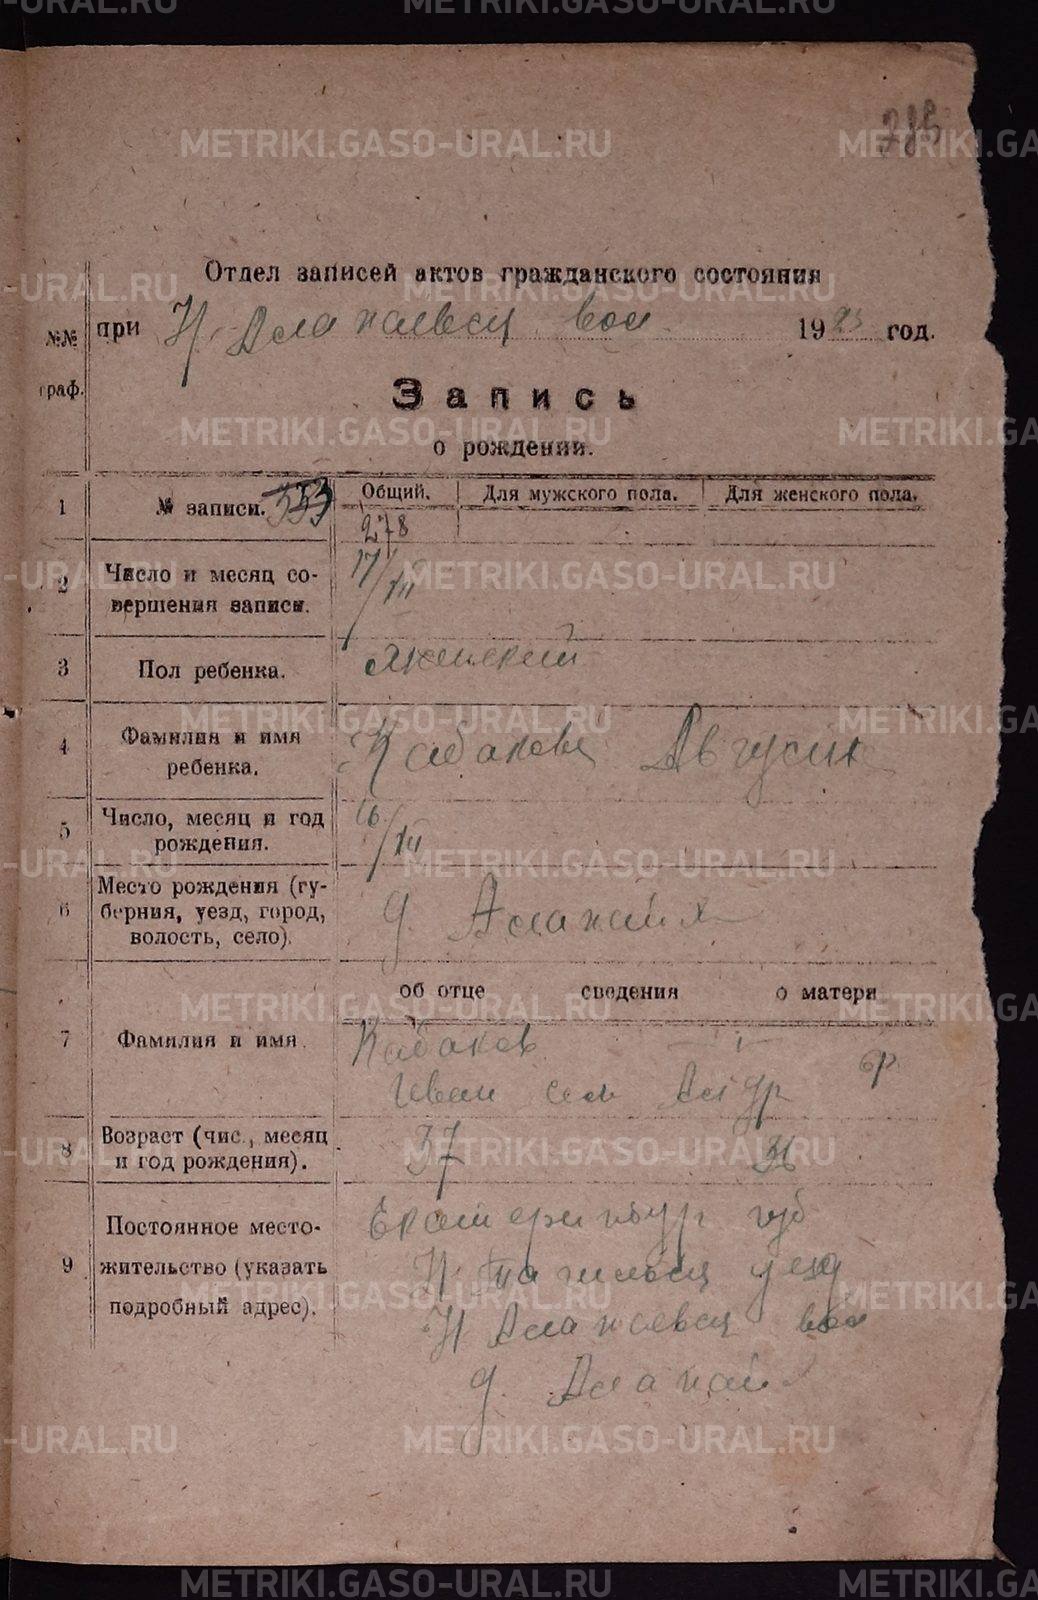 285
Отдел записей актов гражданского состояния
при Н. Алапаевск вол. 1923 год.
№№ граф.
Запись
о рождении.
1 № записи. 353 Общий. Для мужского пола. Для женского пола.
278
2 Число и месяц совершения записи. 17/III
3 Пол ребенка. женский
4 Фамилия и имя ребенка. Кабакова
5 Число, месяц и год рождения. 16/III
6 Место рождения (губерния, уезд, город, волость, село). д.
об отце сведения о матери
7 Фамилия и имя. Кабаков
Иван
8 Возраст (чис., месяц и год рождения). 37 36
9 Постоянное местожительство (указать подробный адрес). Екатеринбург губ
Н Тагильск уезд
вол
д.
METRIKI.GASO-URAL.RU